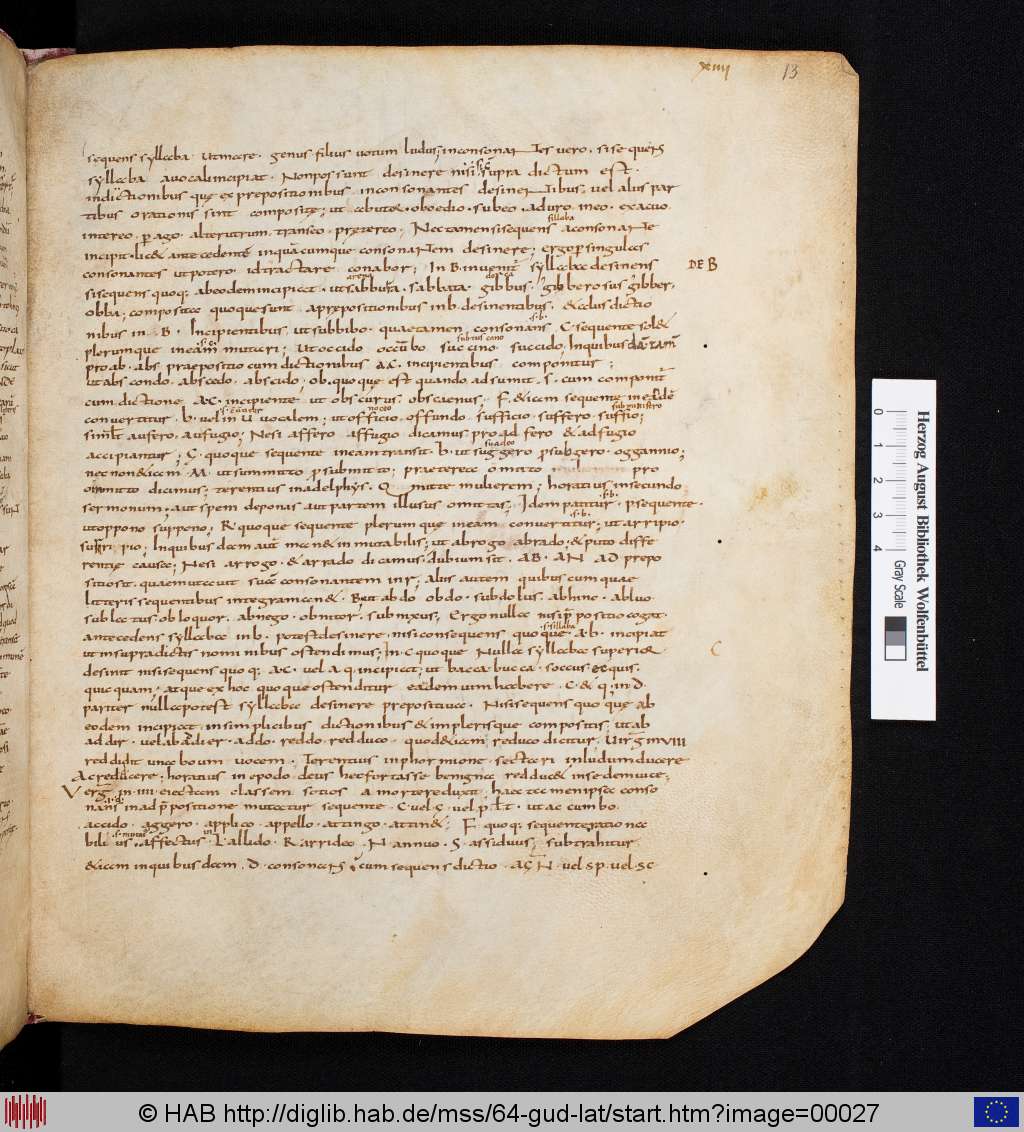 xiiii 13
sequens syllaba ut mare · genus filius uotum ludus; in consonantes uero · si sequens
syllaba a uocali incipiat · Non possunt desinere nisi supra dictum est ·
in dictionibus quę ex prepositionibus in consonantes desinentibus; uel aliis par
tibus orationis sint compositę; ut abutor · oboedio · subeo · aduro ineo · exacuo
intereo · perago · alterutrum, transeo · prętereo · Nec tamen si sequens a consonante
sillaba
incipit · licet antecedentē in quācumque consonantem desinere; ergo per singulas
consonantes ut potero id tractare conabor; In B inuenitur syllaba desinens
DE B
si sequens quoque ab eodem incipiat · ut sabburra · sabbata · gibbus · gibberosus gibber ·
obba; composita quoque sunt a prępositionibus in b · desinentibus ·
nibus in · B · Incipientibus ut subbibo · quae tamen consonans C · sequente solet
s · b ·
plerumque in eam mutari; Ut occido occūbo succino succido, In quibusdam
subtus cano
pro ab · abs praepositio cum dictionibus a · C · incipientibus componitur;
ut abscondo · abscedo · abscido; ob · quoque est quando adsumit · s · cum componitur
cum dictione a · C · incipiente ut obscurus · obscaenus; F · & iam sequente in eadē
conuertitur · b · uel in U uocalem; ut officio · offundo · sufficio · suffero · suffio;
noceo
aufero · aufugio; Ne si affero affugio dicamus pro adfero & adfugio
accipiantur; G · quoque sequente in eam transit · b · ut suggero pro subgero · oggannio;
suadeo
nec non & iam · M · ut summitto pro submitto; praeterea omitto pro
obmitto dicimus; terentius in adelphys · mitte mulierem; horatius in secundo
sermonum · aut spem deponas aut partem illusus omittas; Idem patitur · P sequente ·
s · b ·
ut oppono suppono, R quoque sequente plerumque in eam conuertitur; ut arripio ·
s · b ·
surripio; In quibusdam autē manet inmutabilis; ut abrogo abrado; & puto diffe
rentię causa; Ne si arrogo · & arrado dicamus dubium sit · AB · AN · AD prepo
sitio sit · quae mutauit suā consonantem in r; Aliis autem quibuscumque
litteris sequentibus integra manet · B, ut abdo obdo · subdolus · abhinc · abluo ·
sublatus obloquor · abnego · obnitor · subnixus, Ergo nulla nisi prępositio cogat ·
antecedens syllaba in b · potest desinere · nisi consequens quoque a b · incipiat
s · sillaba
ut in supra dictis nominibus ostendimus; In C quoque Nulla syllaba superiore
C
desinit nisi sequens quoque · a C · uel a q, incipiat; ut bacca bucca · soccus ecquis ·
quicquam · atque ex hoc quoque ostenditur eadem uim habere · C · & q; in · D ·
pariter nulla potest syllaba desinere prepositiua · Nisi sequens quoque ab
eodem incipiat in simplicibus dictionibus & in plerisque compositis; ut ab
addir · uel abadier · addo · reddo · redduco · quod & iam reduco dicitur, Uirg in VIII
reddidit una boum uocem · Terentius in phormione · sectari in ludum ducere
& reducere; horatius in epodo · deus hec fortasse benigna redducet in sedem uice;
Uerg · in · IIII · eiectam classem sotios a morte reduxi · haec tamen ipsa conso
nans in ad prępositione mutatur sequente · C · uel G · uel p · uel t · ut accumbo ·
accido · aggero · applico · appello · attingo · attinet; F · quoque sequente ratio
affectus L alludo · R arrideo N annuo · S assiduus; subtrahitur
& iam in quibusdam · D · consonans cum sequens dictio · uel sp · uel sc
0 1 2 3 4 Gray Scale
Herzog August Bibliothek Wolfenbüttel
© HAB http://diglib.hab.de/mss/64-gud-lat/start.htm?image=00027